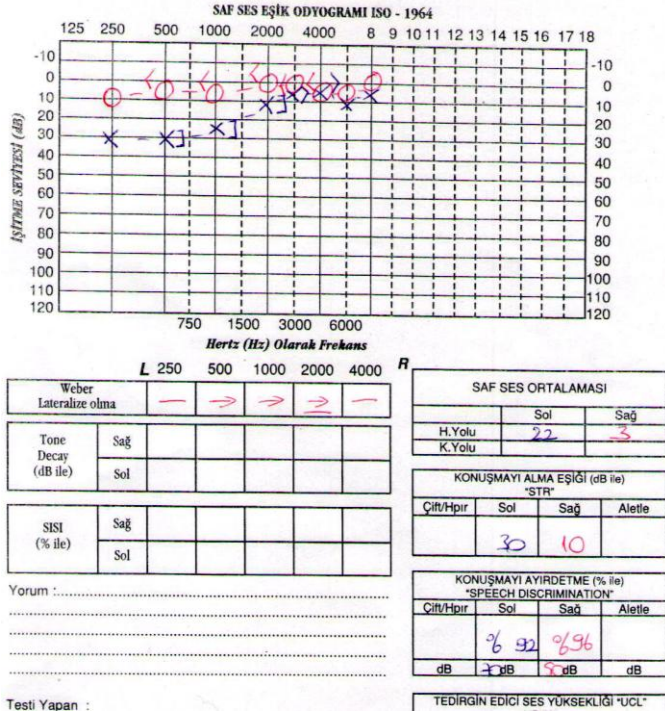 SAF SES EŞİK ODYOGRAMI ISO - 1964
125 250 500 1000 2000 4000 8 9 10 11 12 13 14 15 16 17 18
-10 -10
0 0
10 10
20 20
30 30
40 40
50 50
60 60
70 70
80 80
90 90
100 100
110 110
120 120
İŞİTME SEVİYESİ (dB)
750 1500 3000 6000
Hertz (Hz) Olarak Frekans
L 250 500 1000 2000 4000 R
Weber
Lateralize olma — → → → —
Tone
Decay
(dB ile)
Sağ
Sol
SISI
(% ile)
Sağ
Sol
Yorum :
Testi Yapan :
SAF SES ORTALAMASI
Sol Sağ
H.Yolu 22 3
K.Yolu
KONUŞMAYI ALMA EŞİĞİ (dB ile)
"STR"
Çift/Hpır Sol Sağ Aletle
30 10
KONUŞMAYI AYIRDETME (% ile)
"SPEECH DISCRIMINATION"
Çift/Hpır Sol Sağ Aletle
% 92 %96
dB 70dB dB dB
TEDİRGİN EDİCİ SES YÜKSEKLİĞİ "UCL"